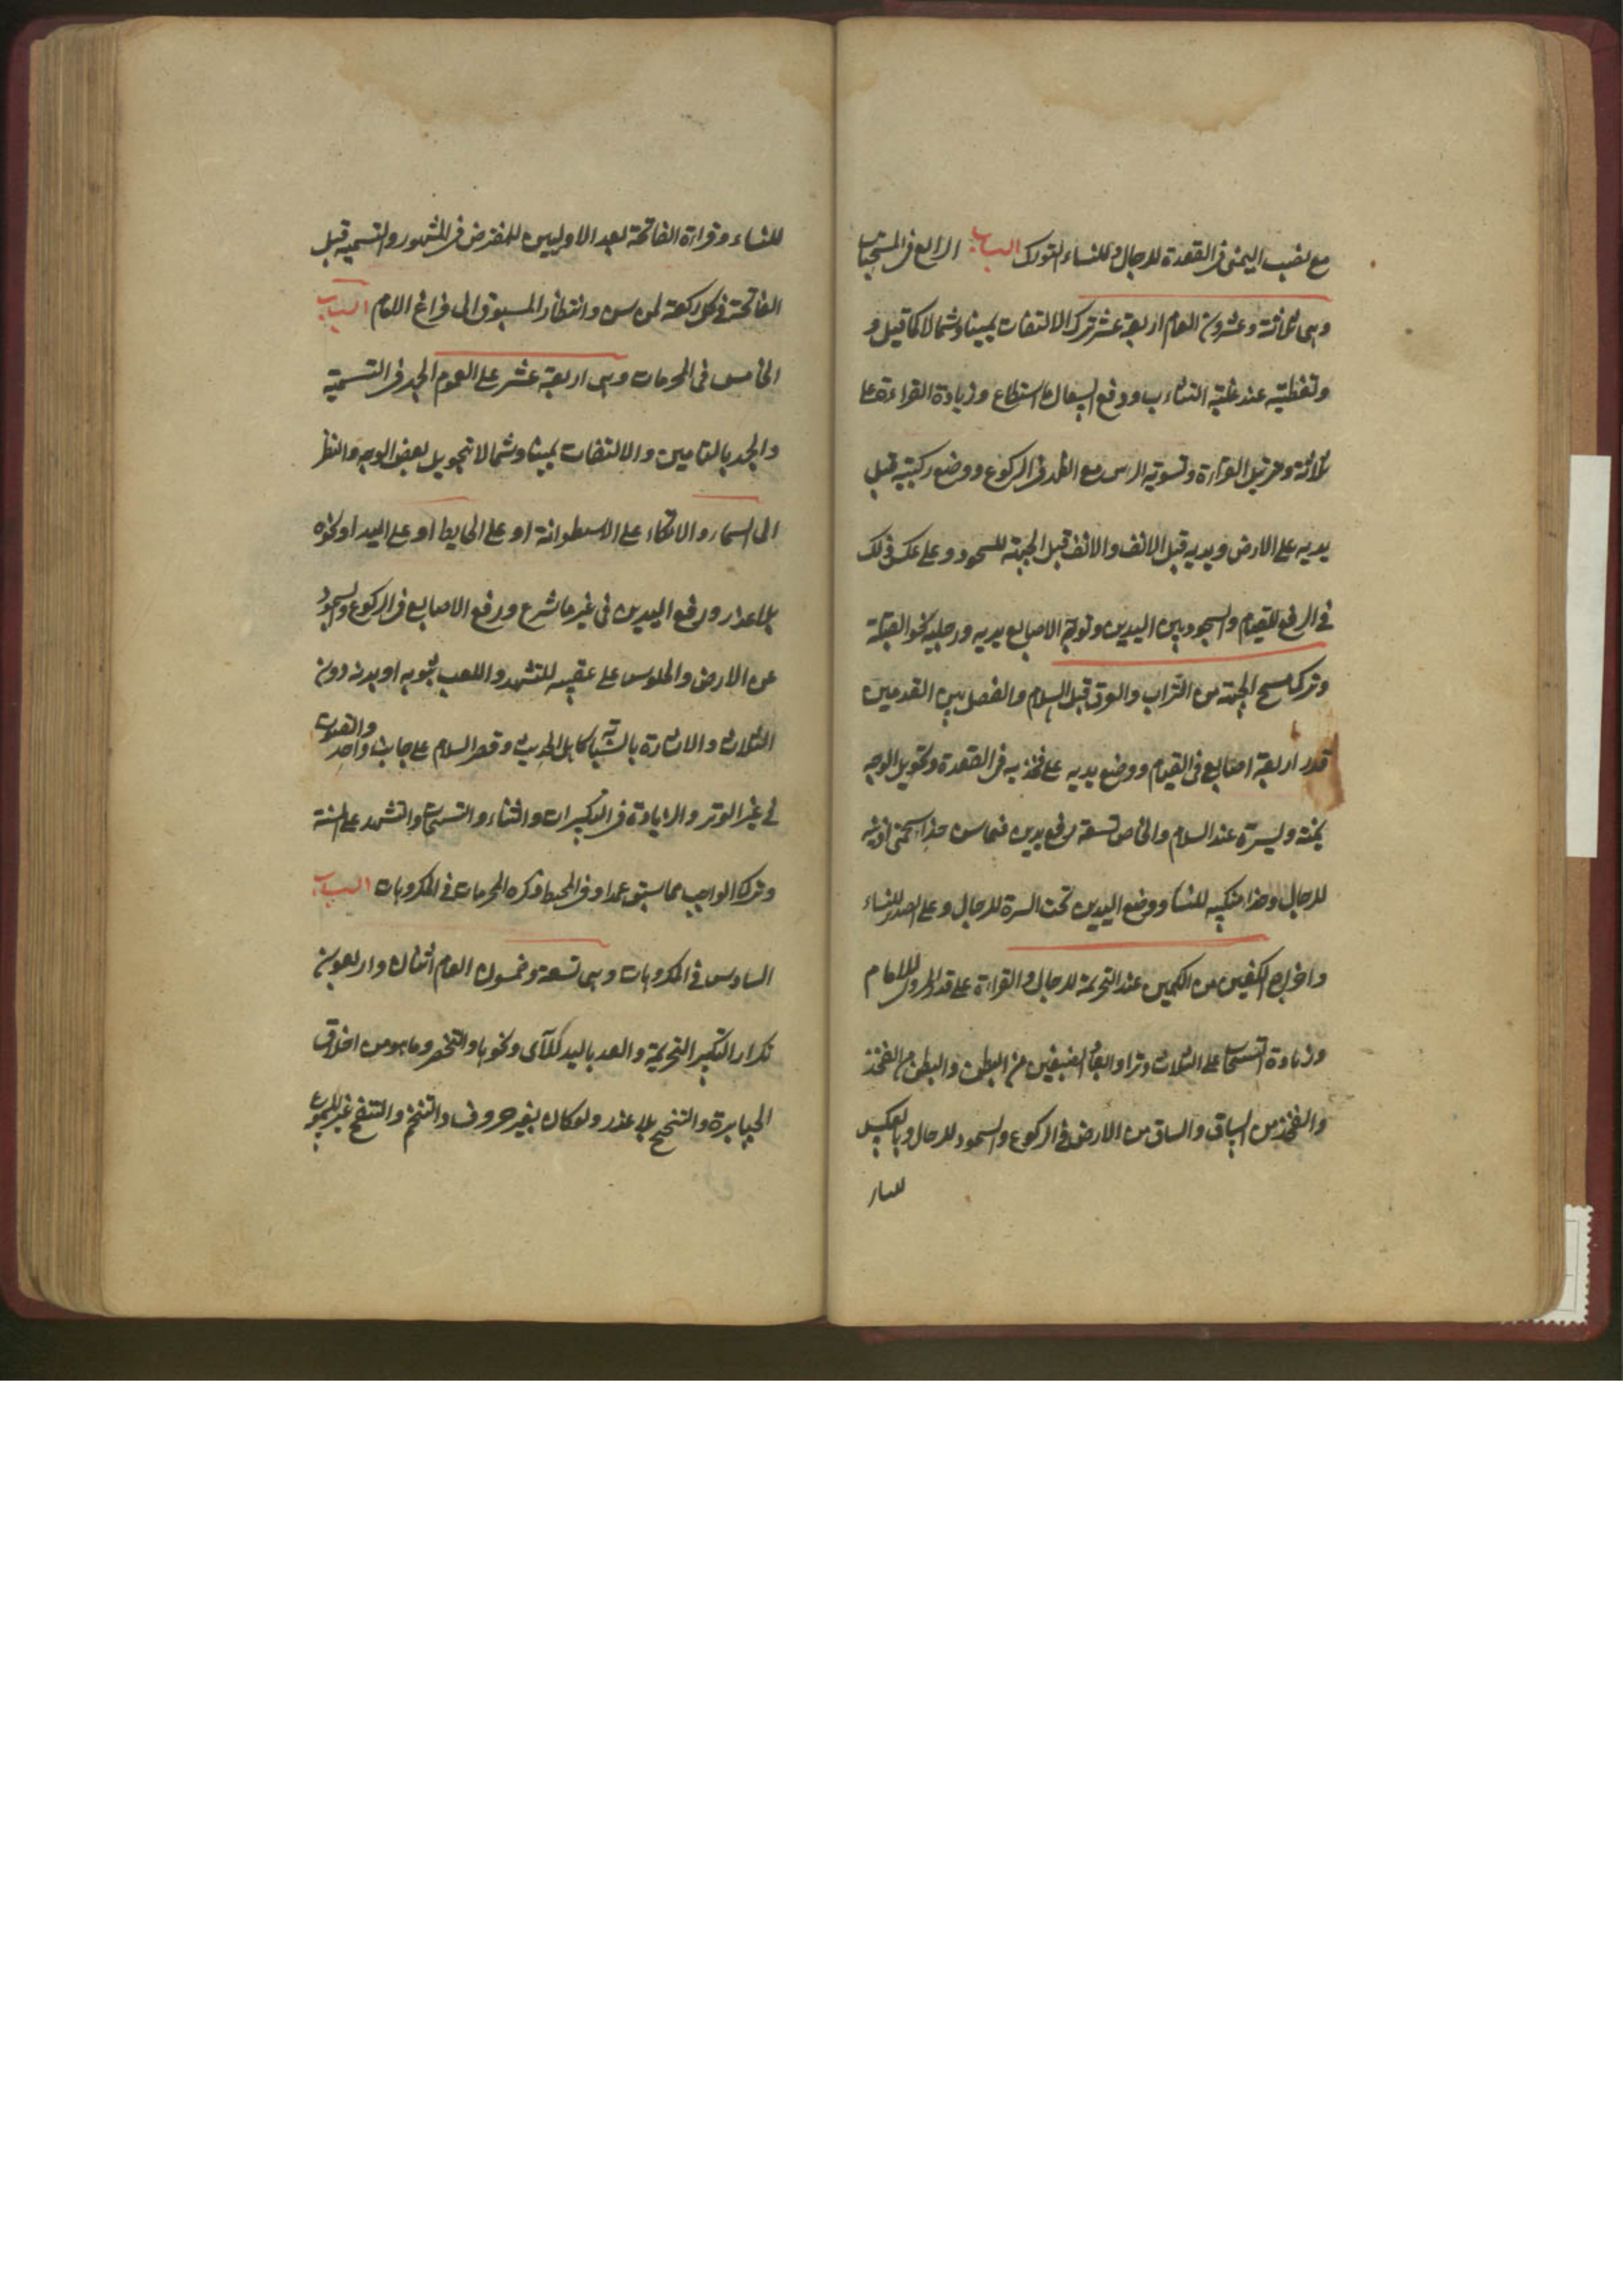 مع نصب اليمنى فى القعدة للرجال وللنساء التورك الباب الرابع فى المستحبات
وهى ثلاثة وعشرون العام اربعة عشر ترك الالتفات يمينا وشمالا كما قيل و
وتغطيته عند غلبة التثاءب ودفع السعال ما استطاع وزيادة القراءة على
ثلاثة وترتيل القراءة وتسوية الراس مع الظهر فى الركوع ووضع ركبتيه قبل
يديه على الارض ويديه قبل الانف والانف قبل الجبهة للسجود وعلى عكس ذلك
فى الرفع للقيام والسجود بين اليدين وتوجه الاصابع يديه ورجليه نحو القبلة
وترك مسح الجبهة من التراب والعرق قبل السلام والفصل بين القدمين
قدر اربعة اصابع فى القيام ووضع يديه على فخذيه فى القعدة وتحويل الوجه
يمنة ويسرة عند السلام والخاص تسعة رفع يدين فيما سن حذاء شحمتى اذنيه
للرجال وحذاء منكبيه للنساء ووضع اليدين تحت السرة للرجال وعلى الصدر للنساء
واخراج الكفين من الكمين عند التحريمة للرجال والقراءة على قدر المروى للامام
وزيادة التسبيحات على الثلاث وترا وابعاد الضبعين من البطن والبطن من الفخذ
والفخذ من الساق والساق من الارض فى الركوع والسجود للرجال وبالعكس
للنساء
للنساء وقراءة الفاتحة بعد الاوليين للمفترض فى المشهور والتسمية قبل
الفاتحة فى كل ركعة لمن سن وانتظار المسبوق الى فراغ الامام الباب
الخامس فى المحرمات وهى اربعة عشر على العموم الجهر فى التسمية
والجهر بالتامين والالتفات يمينا وشمالا بتحويل بعض الوجه والنظر
الى السماء والاتكاء على الاسطوانة او على الحايط او على اليد او نحوه
بلا عذر ورفع اليدين فى غير ما شرع ورفع الاصابع فى الركوع والسجود
عن الارض والجلوس على عقبيه للتشهد واللعب بثوبه او بدنه دون
الثلاث والاشارة بالسبابة كاهل الحديث وقصر السلام على جانب واحد والقنوت
فى غير الوتر والزيادة فى التكبيرات والثناء والتسبيحات والتشهد على السنة
وترك الواجب مما سبق عمدا وفى المحيط ذكره المحرمات فى المكروهات الباب
السادس فى المكروهات وهى تسعة وخمسون العام اثنان واربعون
تكرار التكبير التحريمة والعد باليد للآى ونحوها والتخصر وما هو من اخلاق
الجبابرة والتنحنح بلا عذر ولو كان بغير حروف والتنخم والتنفخ غير المسموع